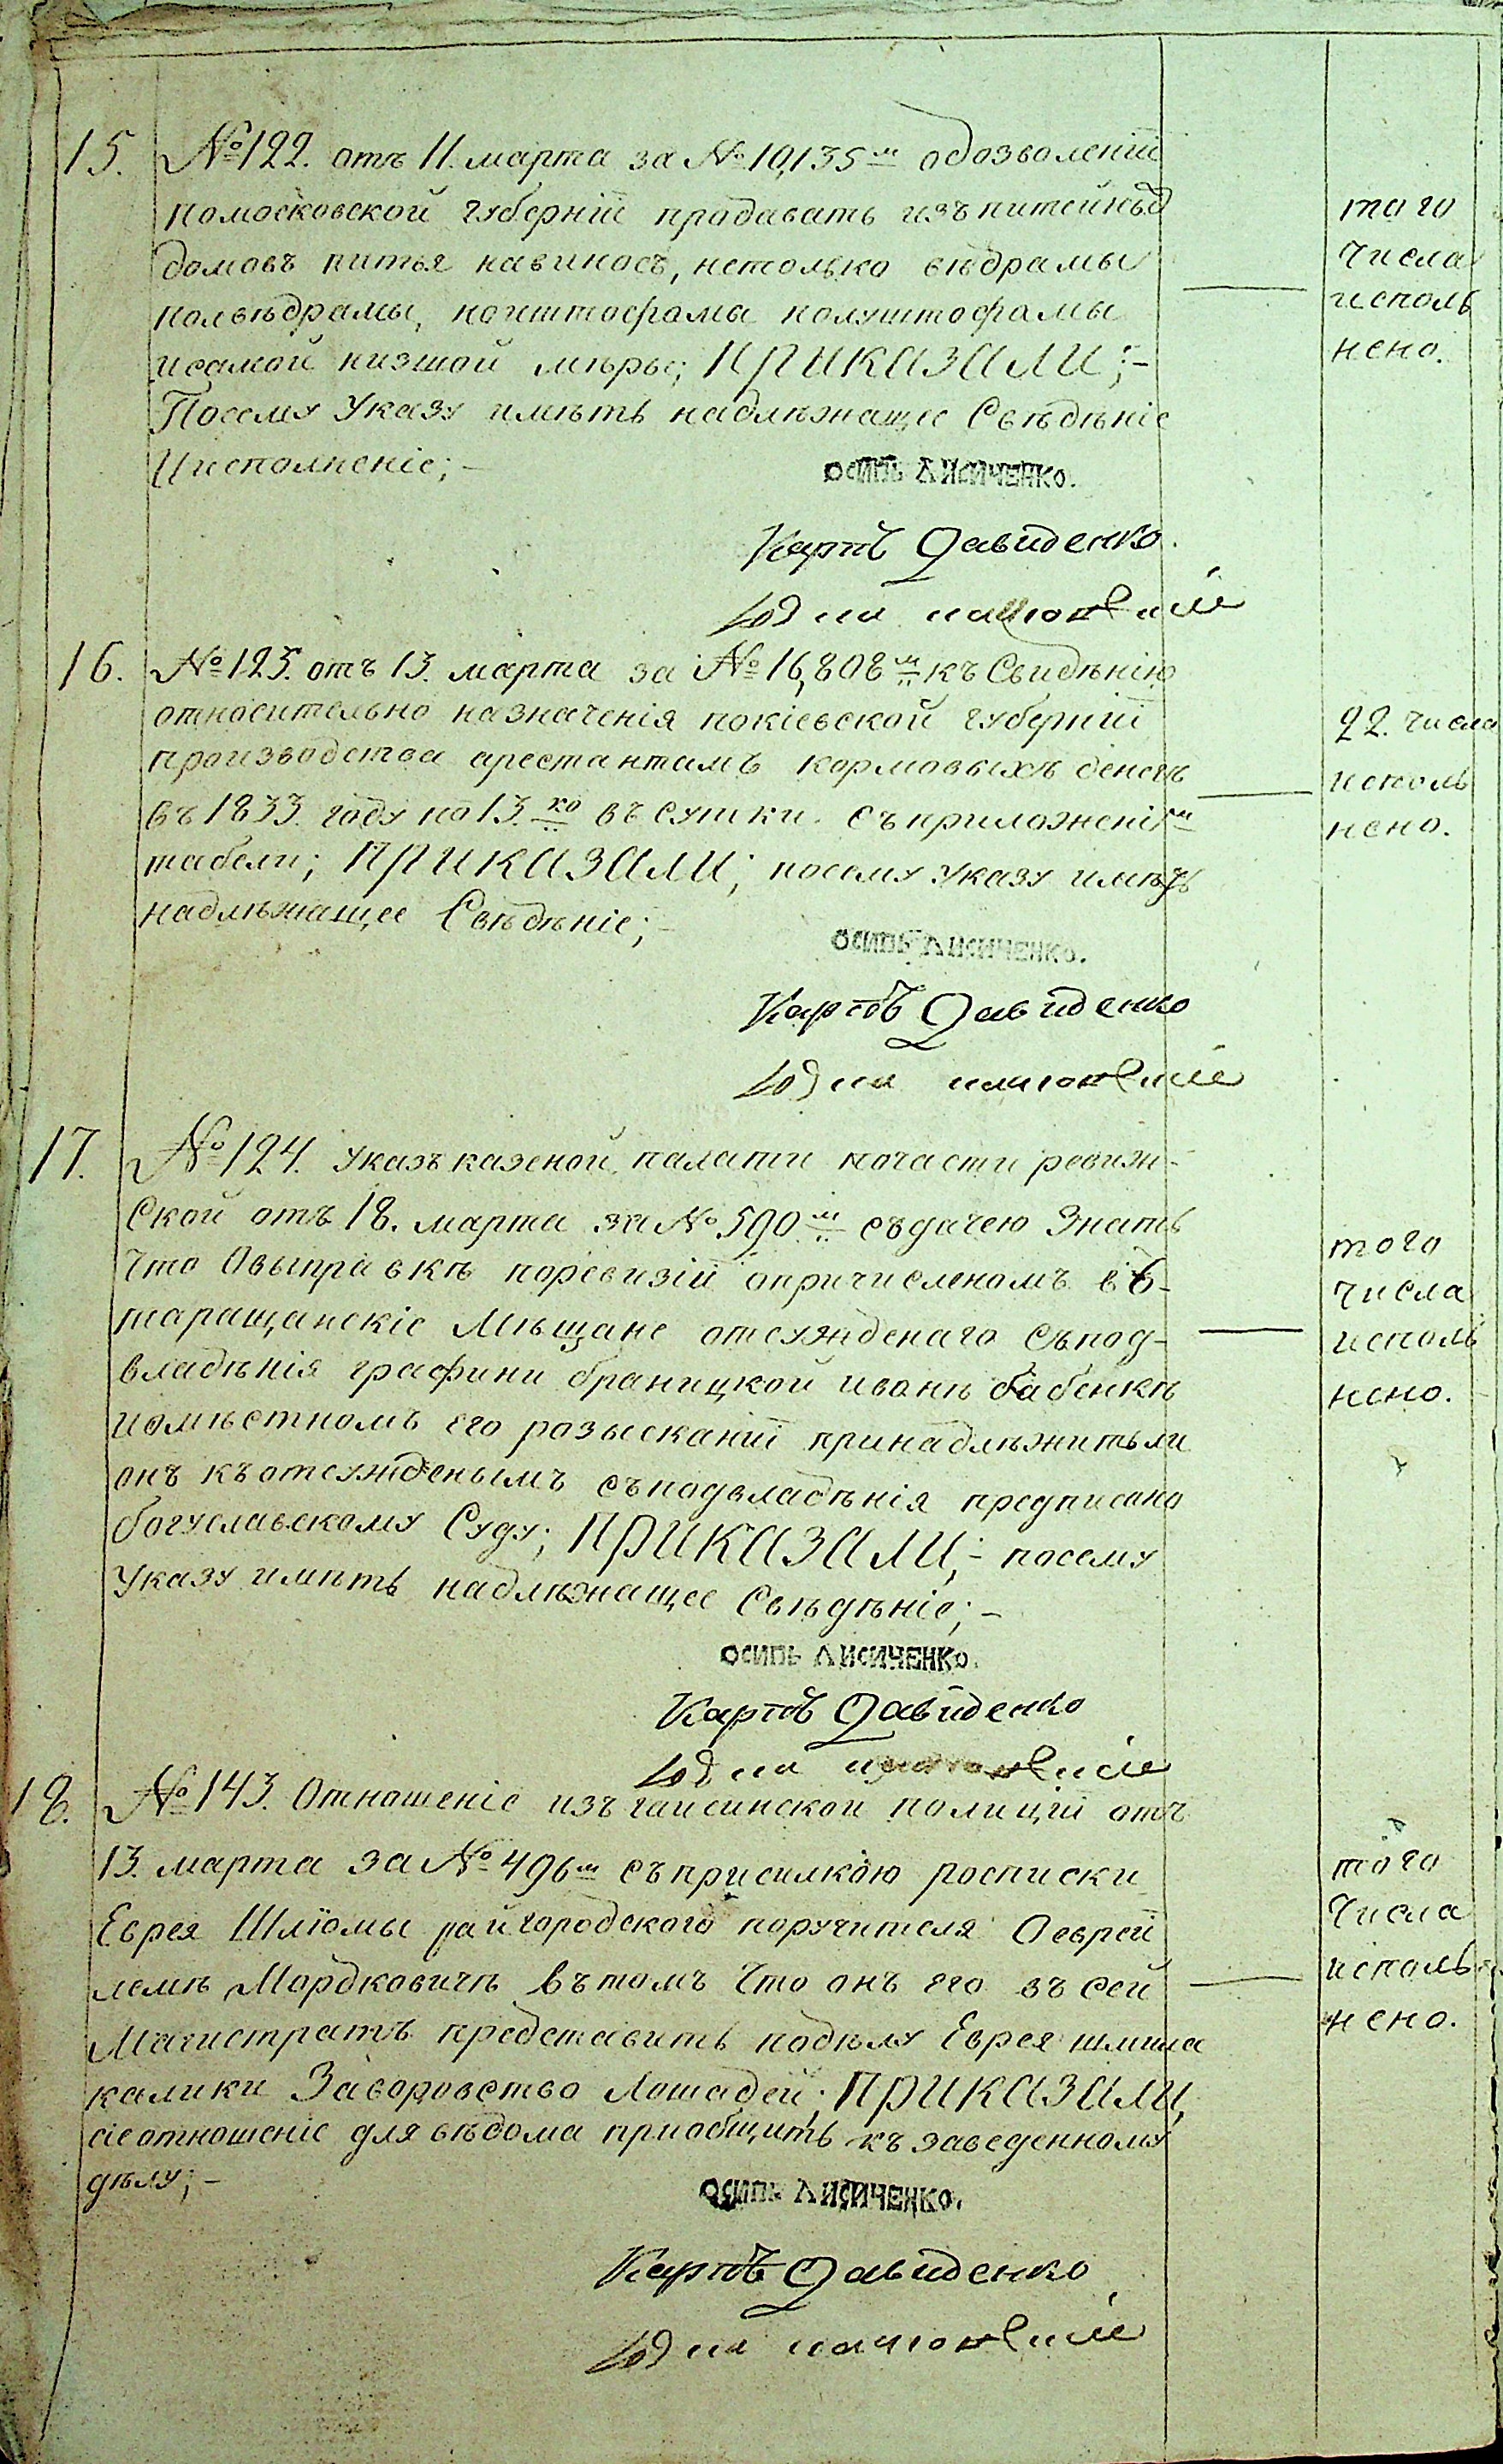 15. №122. отъ 11. марта за №10,135м одозволеніи
помосковской губерніи продавать изъ питейныхъ
домовъ питья навиносъ, нетолько вѣдрамы
полвѣдрамы, ноиштофамы полуштофамы
исамой низшой мѣры; ПРИКАЗАЛИ;-
Посему Указу имѣть надлѣжащее Свѣдѣніе
Иисполненіе;-
того
числа
исполь
нено.
ОСИПЬ ЛИСИЧЕНКО.
Карпъ Давиденко.
16. №123. отъ 13. марта за №16,808м къ Свидѣнію
относительно назначенія покіевской губерніи
производства арестантамъ кормовыхъ денегъ
въ 1833. году по 13. ко въ сутки. съприложеніем
табели; ПРИКАЗАЛИ; посему Указу имѣть
надлѣжащее Свѣдѣніе;-
22. числа
исполь
нено.
ОСИПЬ ЛИСИЧЕНКО.
Карпъ Давиденко
17. №124. указъ казеной палати почасти ревизж-
ской отъ 18. марта за №590м съдачею Знать
Что Овыправкѣ поревизіи опричисленомъ въ
таращанскіе Мѣщане отсужденаго съпод-
владѣнія графини браницкой иванѣ бабенкѣ
иомѣстномъ его розысканіи принадлѣжитьли
онъ къотсужденымъ съподвладѣнія предписано
богуславскому Суду; ПРИКАЗАЛИ;- посему
Указу имѣть надлѣжащее Свѣдѣніе;-
того
числа
исполь
нено.
ОСИПЬ ЛИСИЧЕНКО.
Карпъ Давиденко
18. №143. Отношеніе изъ гаисинской полиціи отъ
13. марта за №496м съприсилкою росписки
Еврея Шліомы райгородского поручителя Оеврей
лемѣ Мордковичѣ въ томъ Что онъ его въ сей
Магистратъ представить подѣлу Еврея шмила
калики Заворовство Лошадей; ПРИКАЗАЛИ,
сіеотношеніе для вѣдома приобщить къ заведенному
дѣлу;-
того
Числа
исполь
нено.
ОСИПЬ ЛИСИЧЕНКО.
Карпъ Давиденко